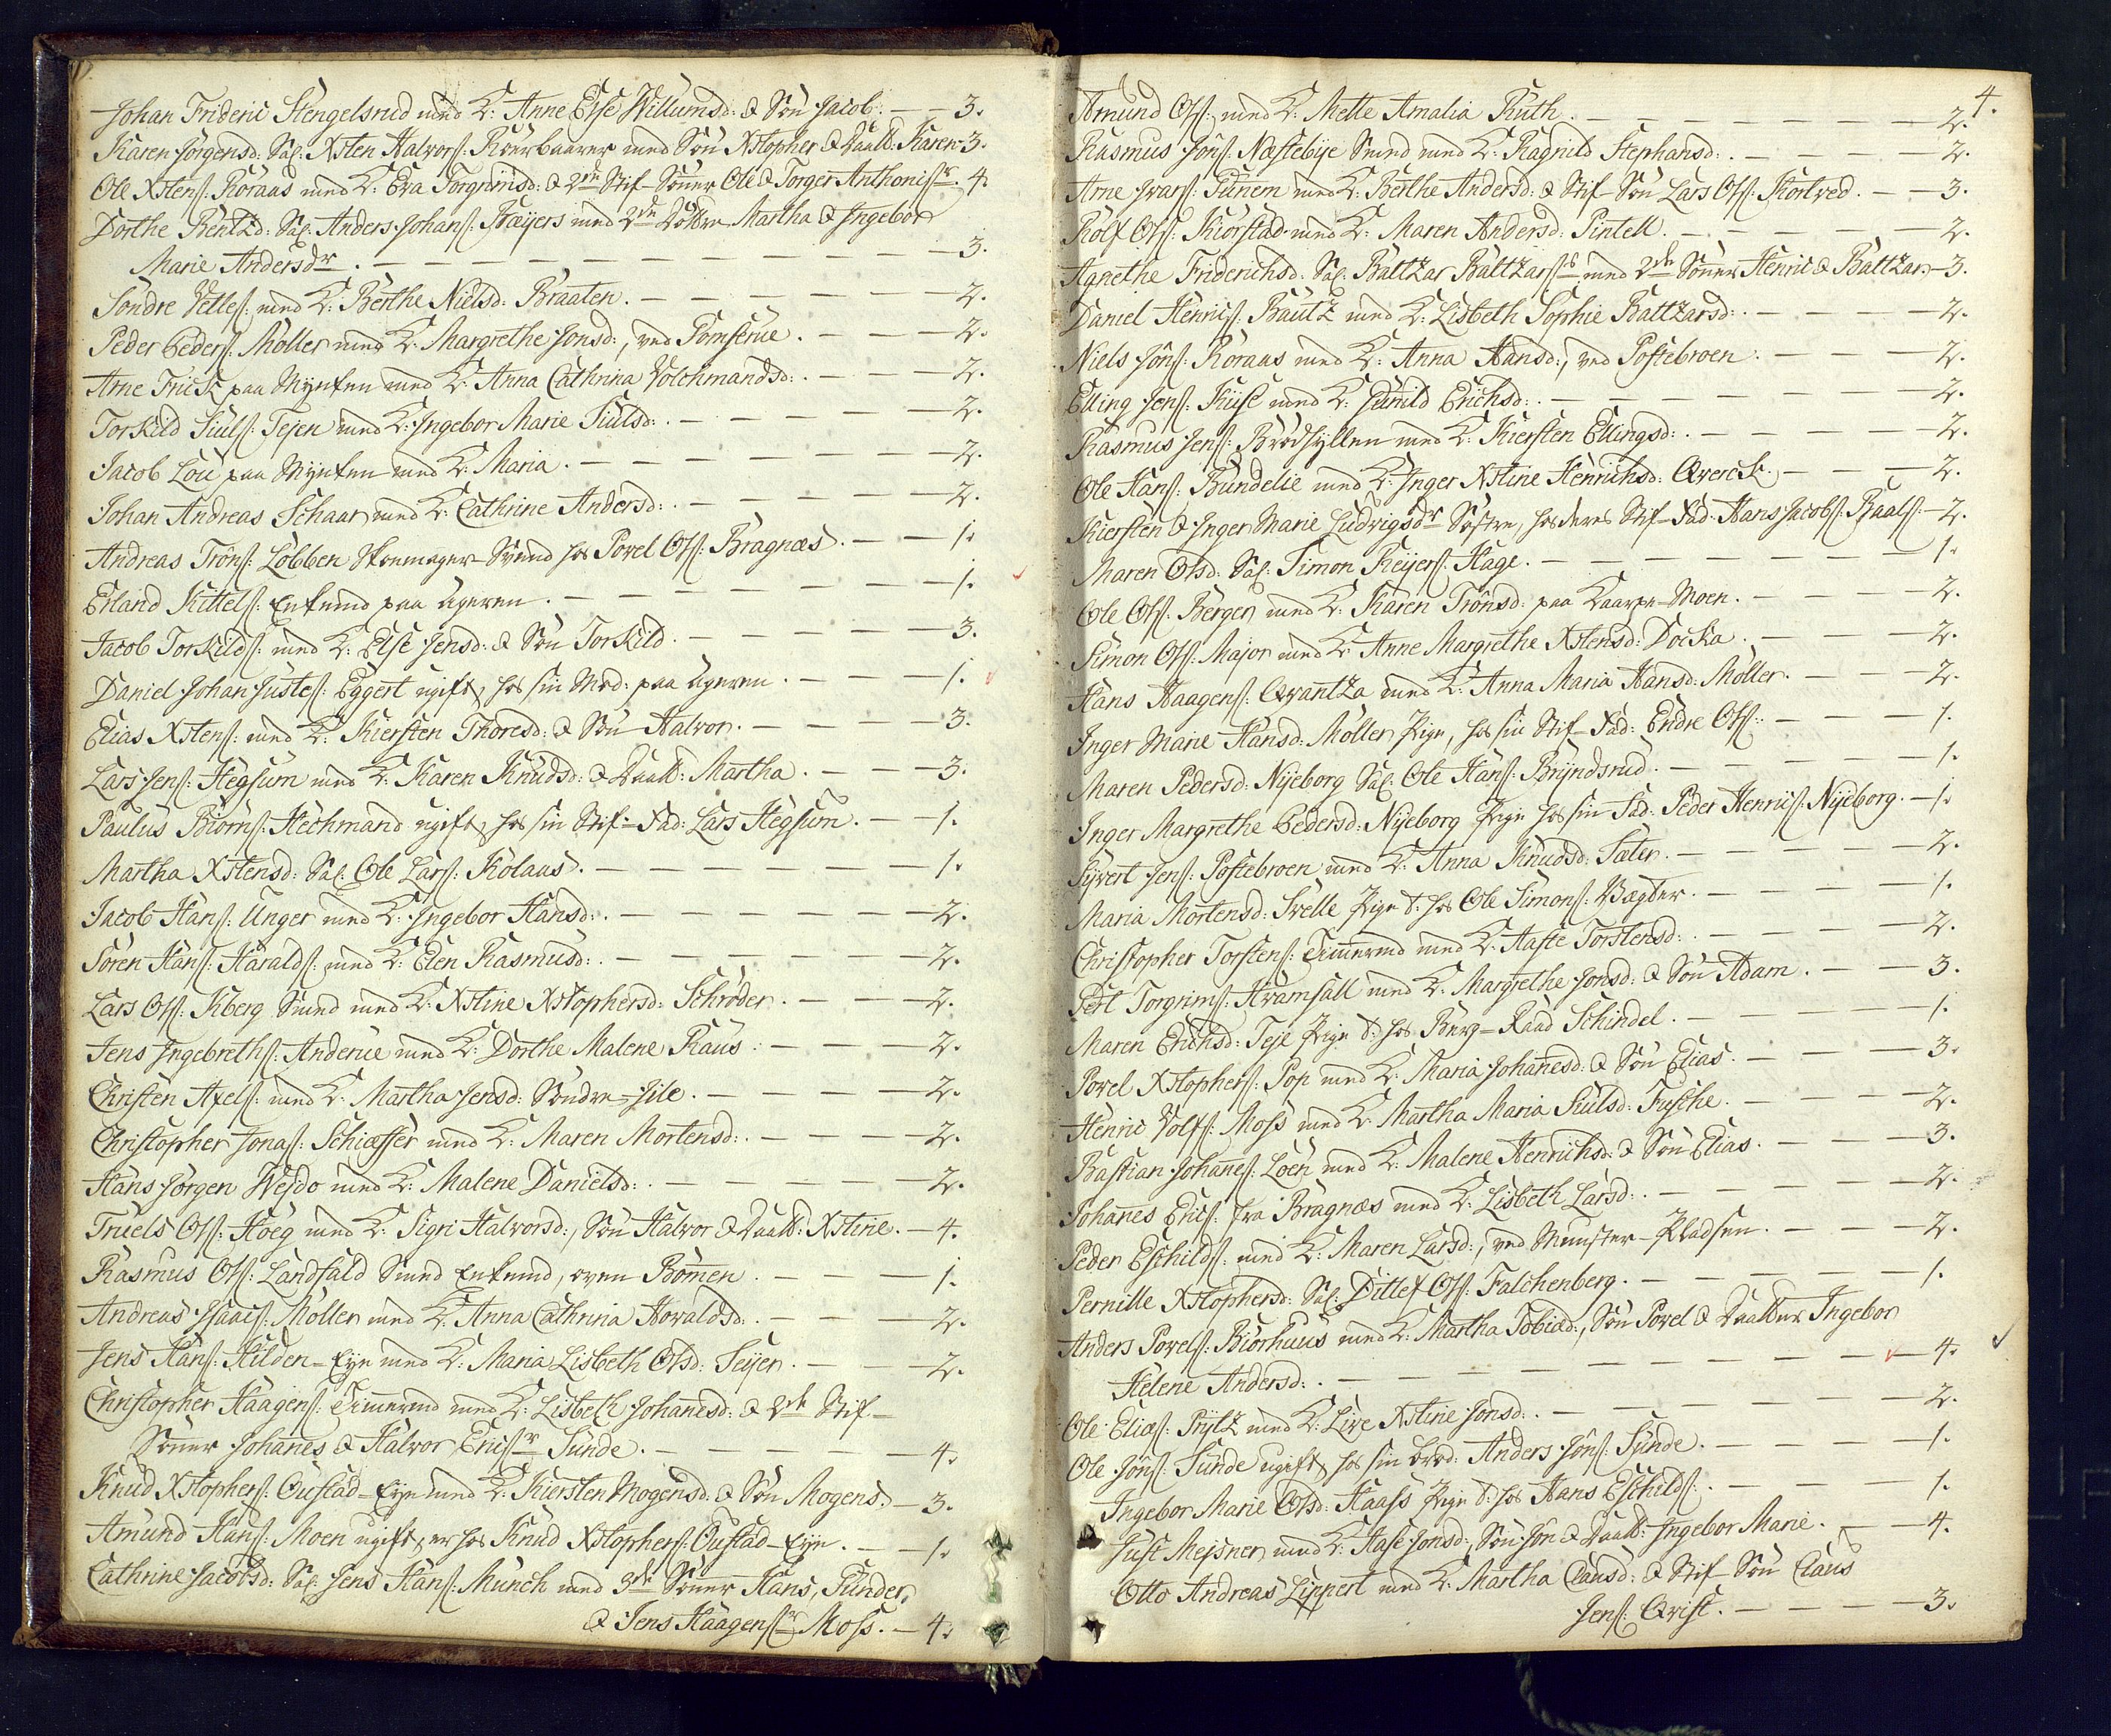 Johan Frideric Stengelsrud med K: Anne Else Willumsd: & Søn Jacob: — — 3.
Karen Jørgensd: Sal: Xsten Halvors: Røerbaarer med Søn Xstopher & Daatt: Karen 3.
Ole Xstens: Røraas med K: Eva Torgrimsd: & 2de Stif-Sønner Ole & Torger Anthoniss: 4.
Dorthe Bentzd: Sal: Anders Johans: med 2de Døttre Martha & Ingebor
Marie Andersdr. — — — 3.
Søndre Vetles: med K: Berthe Nielsd: Braaten. — — — 2.
Peder Peders: Møller med K: Margrethe Jonsd:, ved — — — 2.
Arne Frick paa Mynten med K: Anna Cathrina Volchmandsd: — — — 2.
Torkild Siuls: Tejen med K: Ingebor Marie Siulsd: — — — 2.
Jacob Lou paa Mynten med K: Maria. — — — 2.
Johan Andreas Schaar med K: Cathrine Andersd: — — — 2.
Andreas Trøns: Løbben Skoemager Svend hos Povel Ols: Bragnæs. — — 1.
Erland Kittels: Enkemd paa Ageren. — — — 1.
Jacob Torkilds: med K: Else Jensd: & Søn Torkild. — — — 3.
Daniel Johan Justes: Eggert ugift, hos sin Mod: paa Ageren. — — — 1.
Elias Xstens: med K: Kiersten Thoresd: & Søn Halvor. — — — 3.
Lars Jens: Hegsum med K: Karen Knudsd: & Daatt: Martha. — — — 3.
Paulus Biørns: Hechmand ugift, hos sin Stif-Fad: Lars Hegsum. — — 1.
Martha Xstensd: Sal: Ole Lars: Kolaas. — — — 1.
Jacob Hans: Unger med K: Ingebor Hansd: — — — 2.
Søren Hans: Haralds: med K: Elen Rasmusd: — — — 2.
Lars Ols: Kberg Smed med K: Xstine Xstophersd: Schrøder. — — — 2.
Jens Ingebreths: Anderue med K: Dorthe Malene Raus: — — — 2.
Christen Axels: med K: Martha Jensd: Søndre-Jile. — — — 2.
Christopher Jonas: Schiæffer med K: Maren Mortensd: — — — 2.
Hans Jørgen Wejdo med K: Malene Danielsd: — — — 2.
Truels Ols: Høeg med K: Sigri Halvorsd:, Søn Halvor & Daatt: Xstine. — 4.
Rasmus Ols: Landfald Smed Enkemd, oven Bommen. — — — 1.
Andreas Isaacs: Møller med K: Anna Cathrina Hovaldsd: — — — 2.
Jens Hans: Hilden-Eje med K: Maria Lisbeth Olsd: Sejer. — — — 2.
Christopher Haagens: Timmermd med K: Lisbeth Johannesd: & 2de Stif-
Sønner Johannes & Halvor Ericsr Sunde. — — — 4.
Knud Xstophers: Oustad-Eje med K: Kiersten Mogensd: & Søn Mogens. — 3.
Amund Hans: Moen ugift, er hos Knud Xstophers: Oustad-Eje. — — 1.
Cathrine Jacobsd: Sal: Jens Hans: Munch med 3de Sønner Hans, Gunder,
& Jens Haagensr Moss. — 4.
4.
Amund Ols: med K: Mette Amalia Ruth. — — — 2.
Rasmus Jøns: Næstebye Smed med K: Ragnild Stephansd: — — — 2.
Arne Ivars: med K: Berthe Andersd: & Stif Søn Lars Ols: Kortved. — — 3.
Rolf Ols: Kiørstad med K: Maren Andersd: Pintell. — — — 2.
Agnethe Friderichsd: Sal: Baltzar Baltzars: med 2de Sønner Henric & Baltzar. — 3.
Daniel Henrics: Bautz med K: Lisbeth Sophie Baltzarsd: — — — 2.
Niels Jøns: Røraas med K: Anna Hansd:, ved Postebroen. — — — 2.
Elling Jens: Kuse med K: Gunild Erichsd: — — — 2.
Rasmus Jens: Brødhyllen med K: Kiersten Ellingsd: — — — 2.
Ole Hans: Bundelie med K: Inger Xstine Henrichsd: Qverck. — — — 2.
Kiersten & Inger Marie Ludvigsdr Søstre, hos deres Stif-Fad: Hans Jacobs: Raals: — 2.
Maren Olsd: Sal: Simon Reijers: Hage. — — — 1.
Ole Ols: Berger med K: Karen Trønsd: paa Kaarpe-Moen. — — — 2.
Simon Ols: Major med K: Anne Margrethe Xstensd: Docka. — — — 2.
Hans Haagens: Qvantza med K: Anna Maria Hansd: Møller. — — — 2.
Inger Marie Hansd: Møller Pige, hos sin Stif-Fad: Endre Ols: — — — 1.
Maren Pedersd: Nijeborg Sal: Ole Hans: Bryndsrud. — — — 1.
Inger Margrethe Pedersd: Nijeborg Pige hos sin Fad: Peder Henrics: Nijeborg. — 1.
Syvert Jens: Postebroen med K: Anna Knudsd: Sæter. — — — 2.
Maria Mortensd: Svelle Pige t: hos Ole Simons: Vægter. — — — 1.
Christopher Torstens: Timmermd med K: Aaste Torstensd: — — — 2.
Pert Torgrims: Hramfall med K: Margrethe Jonsd: & Søn Adam. — — 3.
Maren Erichsd: Teje Pige t: hos Berg-Raad Schindel. — — — 1.
Povel Xstophers: Pop med K: Maria Johannesd: & Søn Elias. — — — 3.
Henric Volfs: Moss med K: Martha Maria Siulsd: Fusche. — — — 2.
Bastian Johanes: Løen med K: Malene Henrichsd: & Søn Elias. — — — 3.
Johannes Erics: fra Bragnæs med K: Lisbeth Larsd: — — — 2.
Peder Eschilds: med K: Maren Larsd:, ved Munster-Pladsen. — — — 2.
Pernille Xstophersd: Sal: Ditlef Ols: Falchenberg. — — — 1.
Anders Povels: Biørhuus med K: Martha Tobiad:, Søn Povel & Daatter Ingebor
Helene Andersd: — — — 4.
Ole Elias: Prytz med K: Live Xstine Jonsd: — — — 2.
Ole Jøns: Sunde ugift, hos sin Brod: Anders Jøns: Sunde. — — — 1.
Ingebor Marie Olsd: Haass Pige t: hos Hans Eschilds: — — — 1.
Just Mejsner med K: Aase Jonsd:, Søn Jon & Daatt: Ingebor Marie. — — 4.
Otto Andreas Lippert med K: Martha Clausd: & Stif Søn Claus
Jens: Qvist. — — — 3.